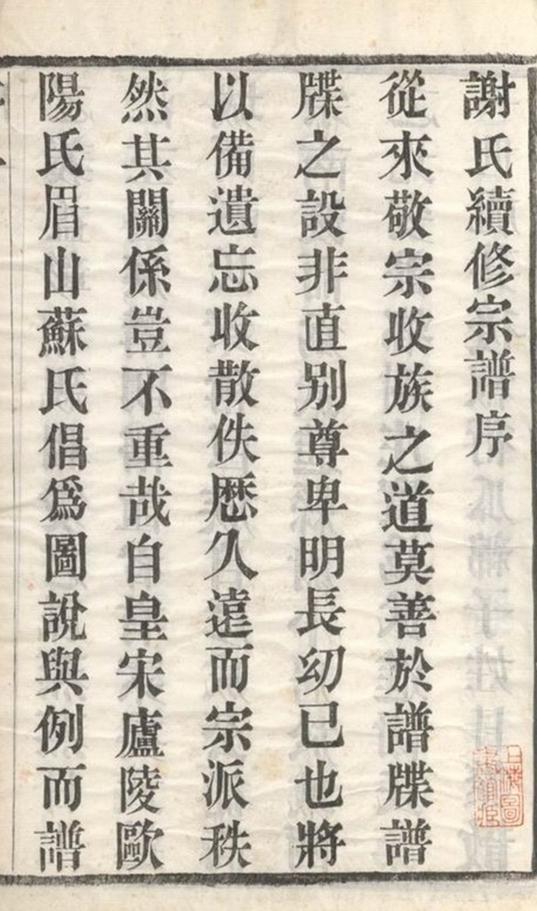 謝氏續修宗譜序
從來敬宗收族之道莫善於譜牒譜
牒之設非直别尊卑明長幼已也將
以備遺忘收散佚厯久遠而宗派秩
然其關係豈不重哉自皇宋廬陵歐
陽氏眉山蘇氏倡爲圖說與例而譜